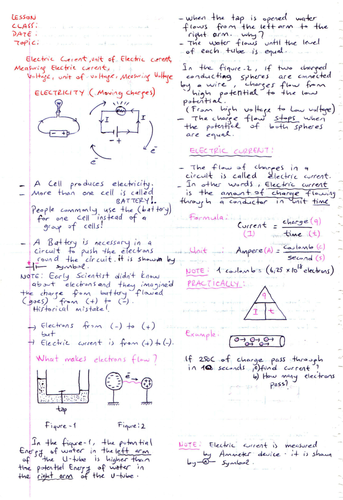 LESSON
CLASS:
DATE:
TOPIC:
Electric Current, unit of Electric current
Measuring Electric Current,
Voltage, unit of voltage, Measuring Voltage
ELECTRICITY (Moving Charges)
I
I
+
-
e-
e-
- A Cell produces electricity.
- More than one cell is called
BATTERY!.
People commonly use the (battery)
for one cell instead of a
group of cells!
- A Battery is necessary in a
circuit to push the electrons
round the circuit. it is shown by
symbol.
NOTE: Early Scientist didn't know
about electrons and they imagined
the charge from battery flowed
(goes) from (+) to (-).
Historical mistake!
→ Electrons from (-) to (+)
but
→ Electric current is from (+) to (-).
What makes electrons flow?
tap
e-
Figure-1
Figure:2
In the figure-1, the potential
Energy of water in the left arm
of the U-tube is higher than
the potential Energy of water in
the right arm of the U-tube.
- When the tap is opened water
flows from the left arm to the
right arm. why?
- The water flows until the level
of each tube is equal.
In the figure-2, if two charged
conducting spheres are connected
by a wire, charges flow from
high potential to the low
potential.
(From high voltage to low voltage)
- The charge flow stops when
the potential of both spheres
are equal.
ELECTRIC CURRENT:
- The flow of charges in a
circuit is called electric current.
- In other words, Electric current
is the amount of charge flowing
through a conductor in unit time
Formula:
Current (I) = charge (q) / time (t)
Unit: Ampere (A) = Coulomb (C) / second (s)
NOTE: 1 coulomb = (6,25 x 10^18 electrons)
PRACTICALLY:
q
I t
Example:
If 250C of charge pass through
in 10 seconds a) find current?
b) How many electrons
pass?
NOTE: Electric current is measured
by Ammeter device. it is shown
by -A- symbol.